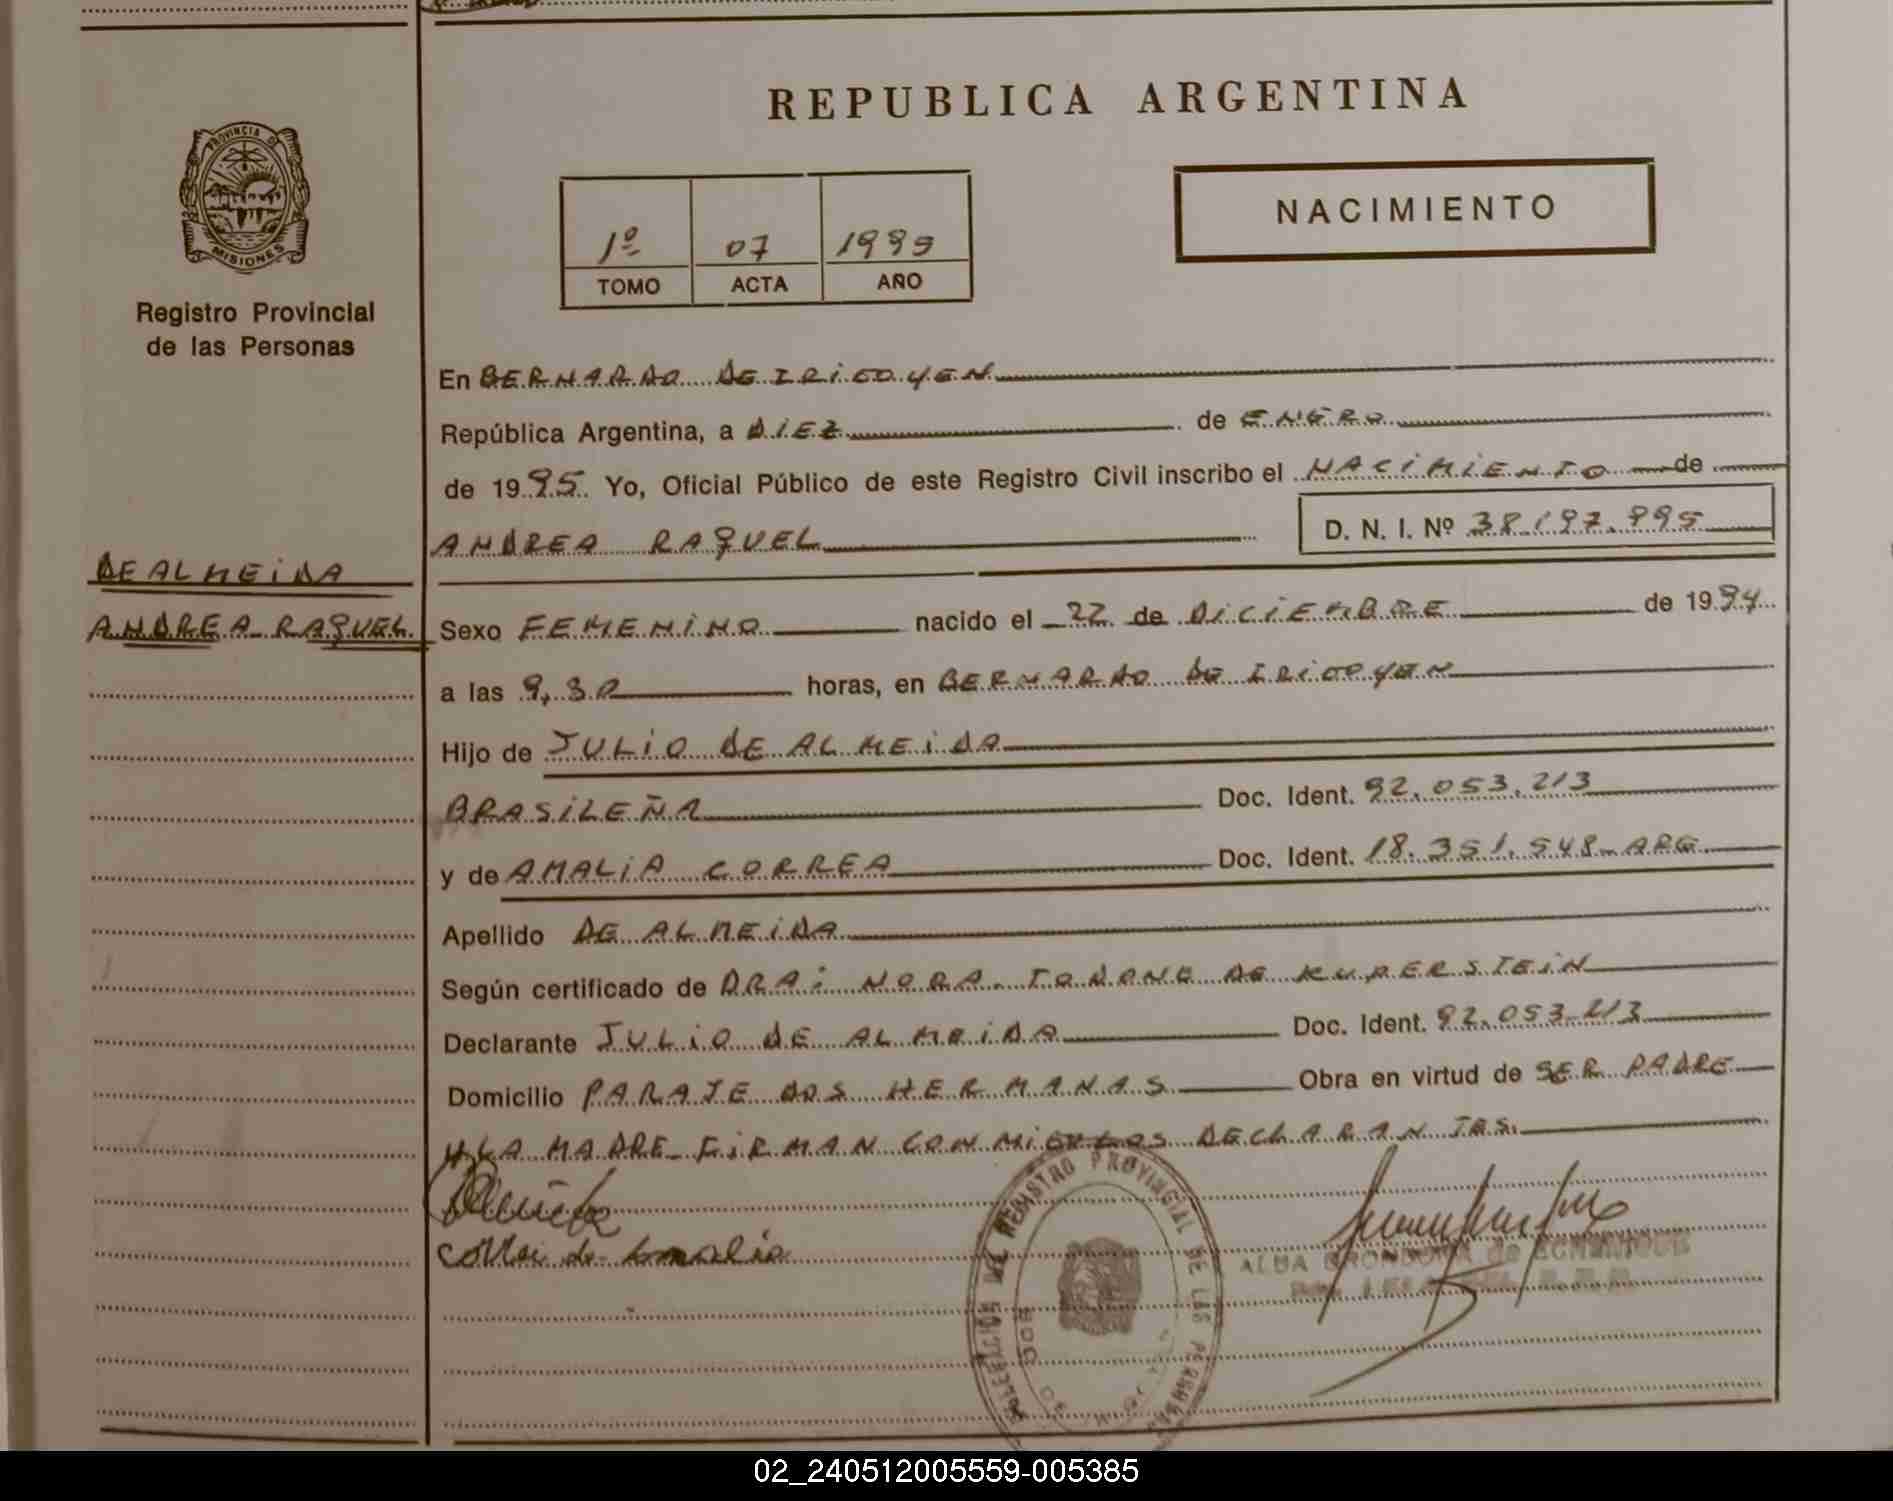 REPUBLICA ARGENTINA
PROVINCIA DE
MISIONES
Registro Provincial
de las Personas
1º 07 1995
TOMO ACTA AÑO
NACIMIENTO
En BERNARDO DE IRIGOYEN
República Argentina, a DIEZ de ENERO
de 1995 Yo, Oficial Público de este Registro Civil inscribo el NACIMIENTO de
ANDREA RAQUEL D. N. I. Nº 38.197.995
DE ALMEIDA
ANDREA RAQUEL
Sexo FEMENINO nacido el 22 de DICIEMBRE de 1994
a las 9,30 horas, en BERNARDO DE IRIGOYEN
Hijo de JULIO DE ALMEIDA
BRASILEÑA Doc. Ident. 92.053.213
y de AMALIA CORREA Doc. Ident. 18.351.548-ARG
Apellido DE ALMEIDA
Según certificado de DRA: NORA DE KUPERSTEIN
Declarante JULIO DE ALMEIDA Doc. Ident. 92.053.213
Domicilio PARAJE DOS HERMANAS Obra en virtud de SER PADRE
Y LA MADRE FIRMAN CONMIGO LOS DECLARANTES.
REGISTRO PROVINCIAL DE LAS PERSONAS
Amalia
ALBA GRONDONA de
02_240512005559-005385